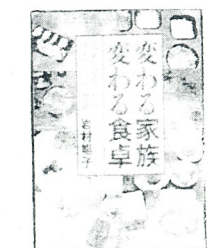 変わる家族
変わる食卓
岩村暢子